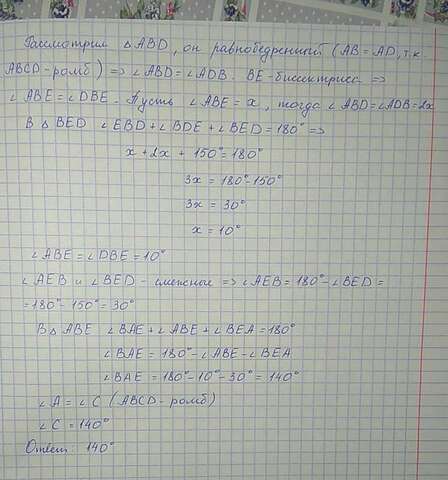 Рассмотрим △ABD, он равнобедренный (AB = AD, т.к.
ABCD-ромб) => ∠ABD = ∠ADB. BE-биссектриса =>
∠ABE = ∠DBE. Пусть ∠ABE = x, тогда ∠ABD = ∠ADB = 2x
В △ BED ∠EBD + ∠BDE + ∠BED = 180° =>
x + 2x + 150° = 180°
3x = 180° - 150°
3x = 30°
x = 10°
∠ABE = ∠DBE = 10°
∠AEB и ∠BED - смежные => ∠AEB = 180° - ∠BED =
= 180° - 150° = 30°
В △ ABE ∠BAE + ∠ABE + ∠BEA = 180°
∠BAE = 180° - ∠ABE - ∠BEA
∠BAE = 180° - 10° - 30° = 140°
∠A = ∠C (ABCD - ромб)
∠C = 140°
Ответ: 140°